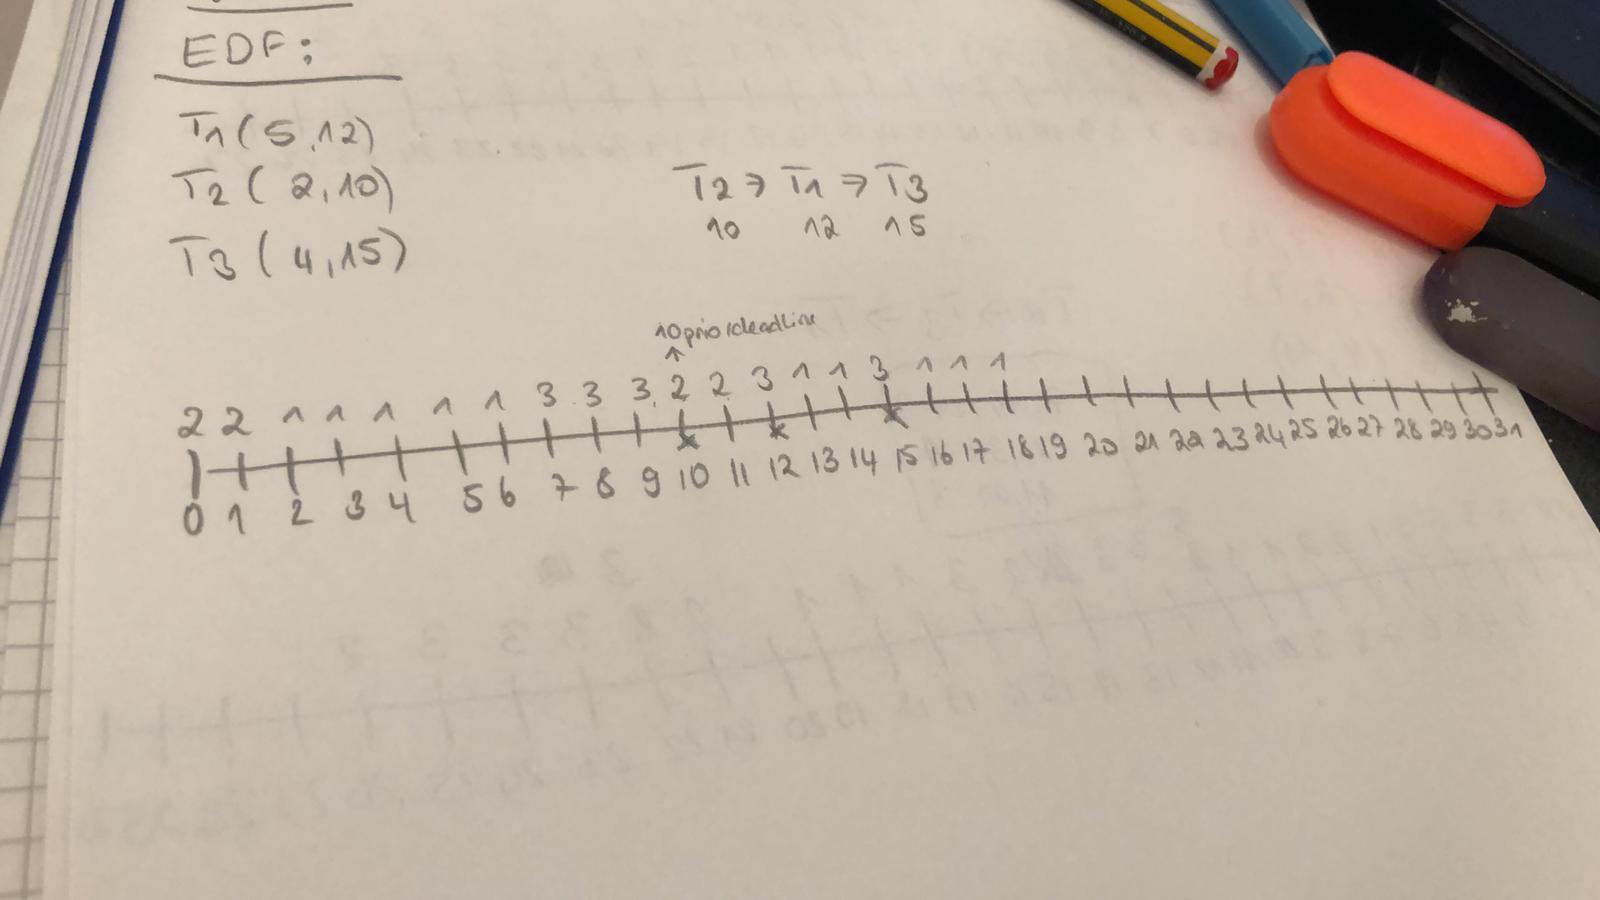 EDF:
T1 (5,12)
T2 (2,10)
T3 (4,15)
T2 → T1 → T3
10 12 15
10 prio/deadline
2 2 1 1 1 1 1 3 3 3 2 2 3 1 1 3 1 1 1
0 1 2 3 4 5 6 7 8 9 10 11 12 13 14 15 16 17 18 19 20 21 22 23 24 25 26 27 28 29 30 31